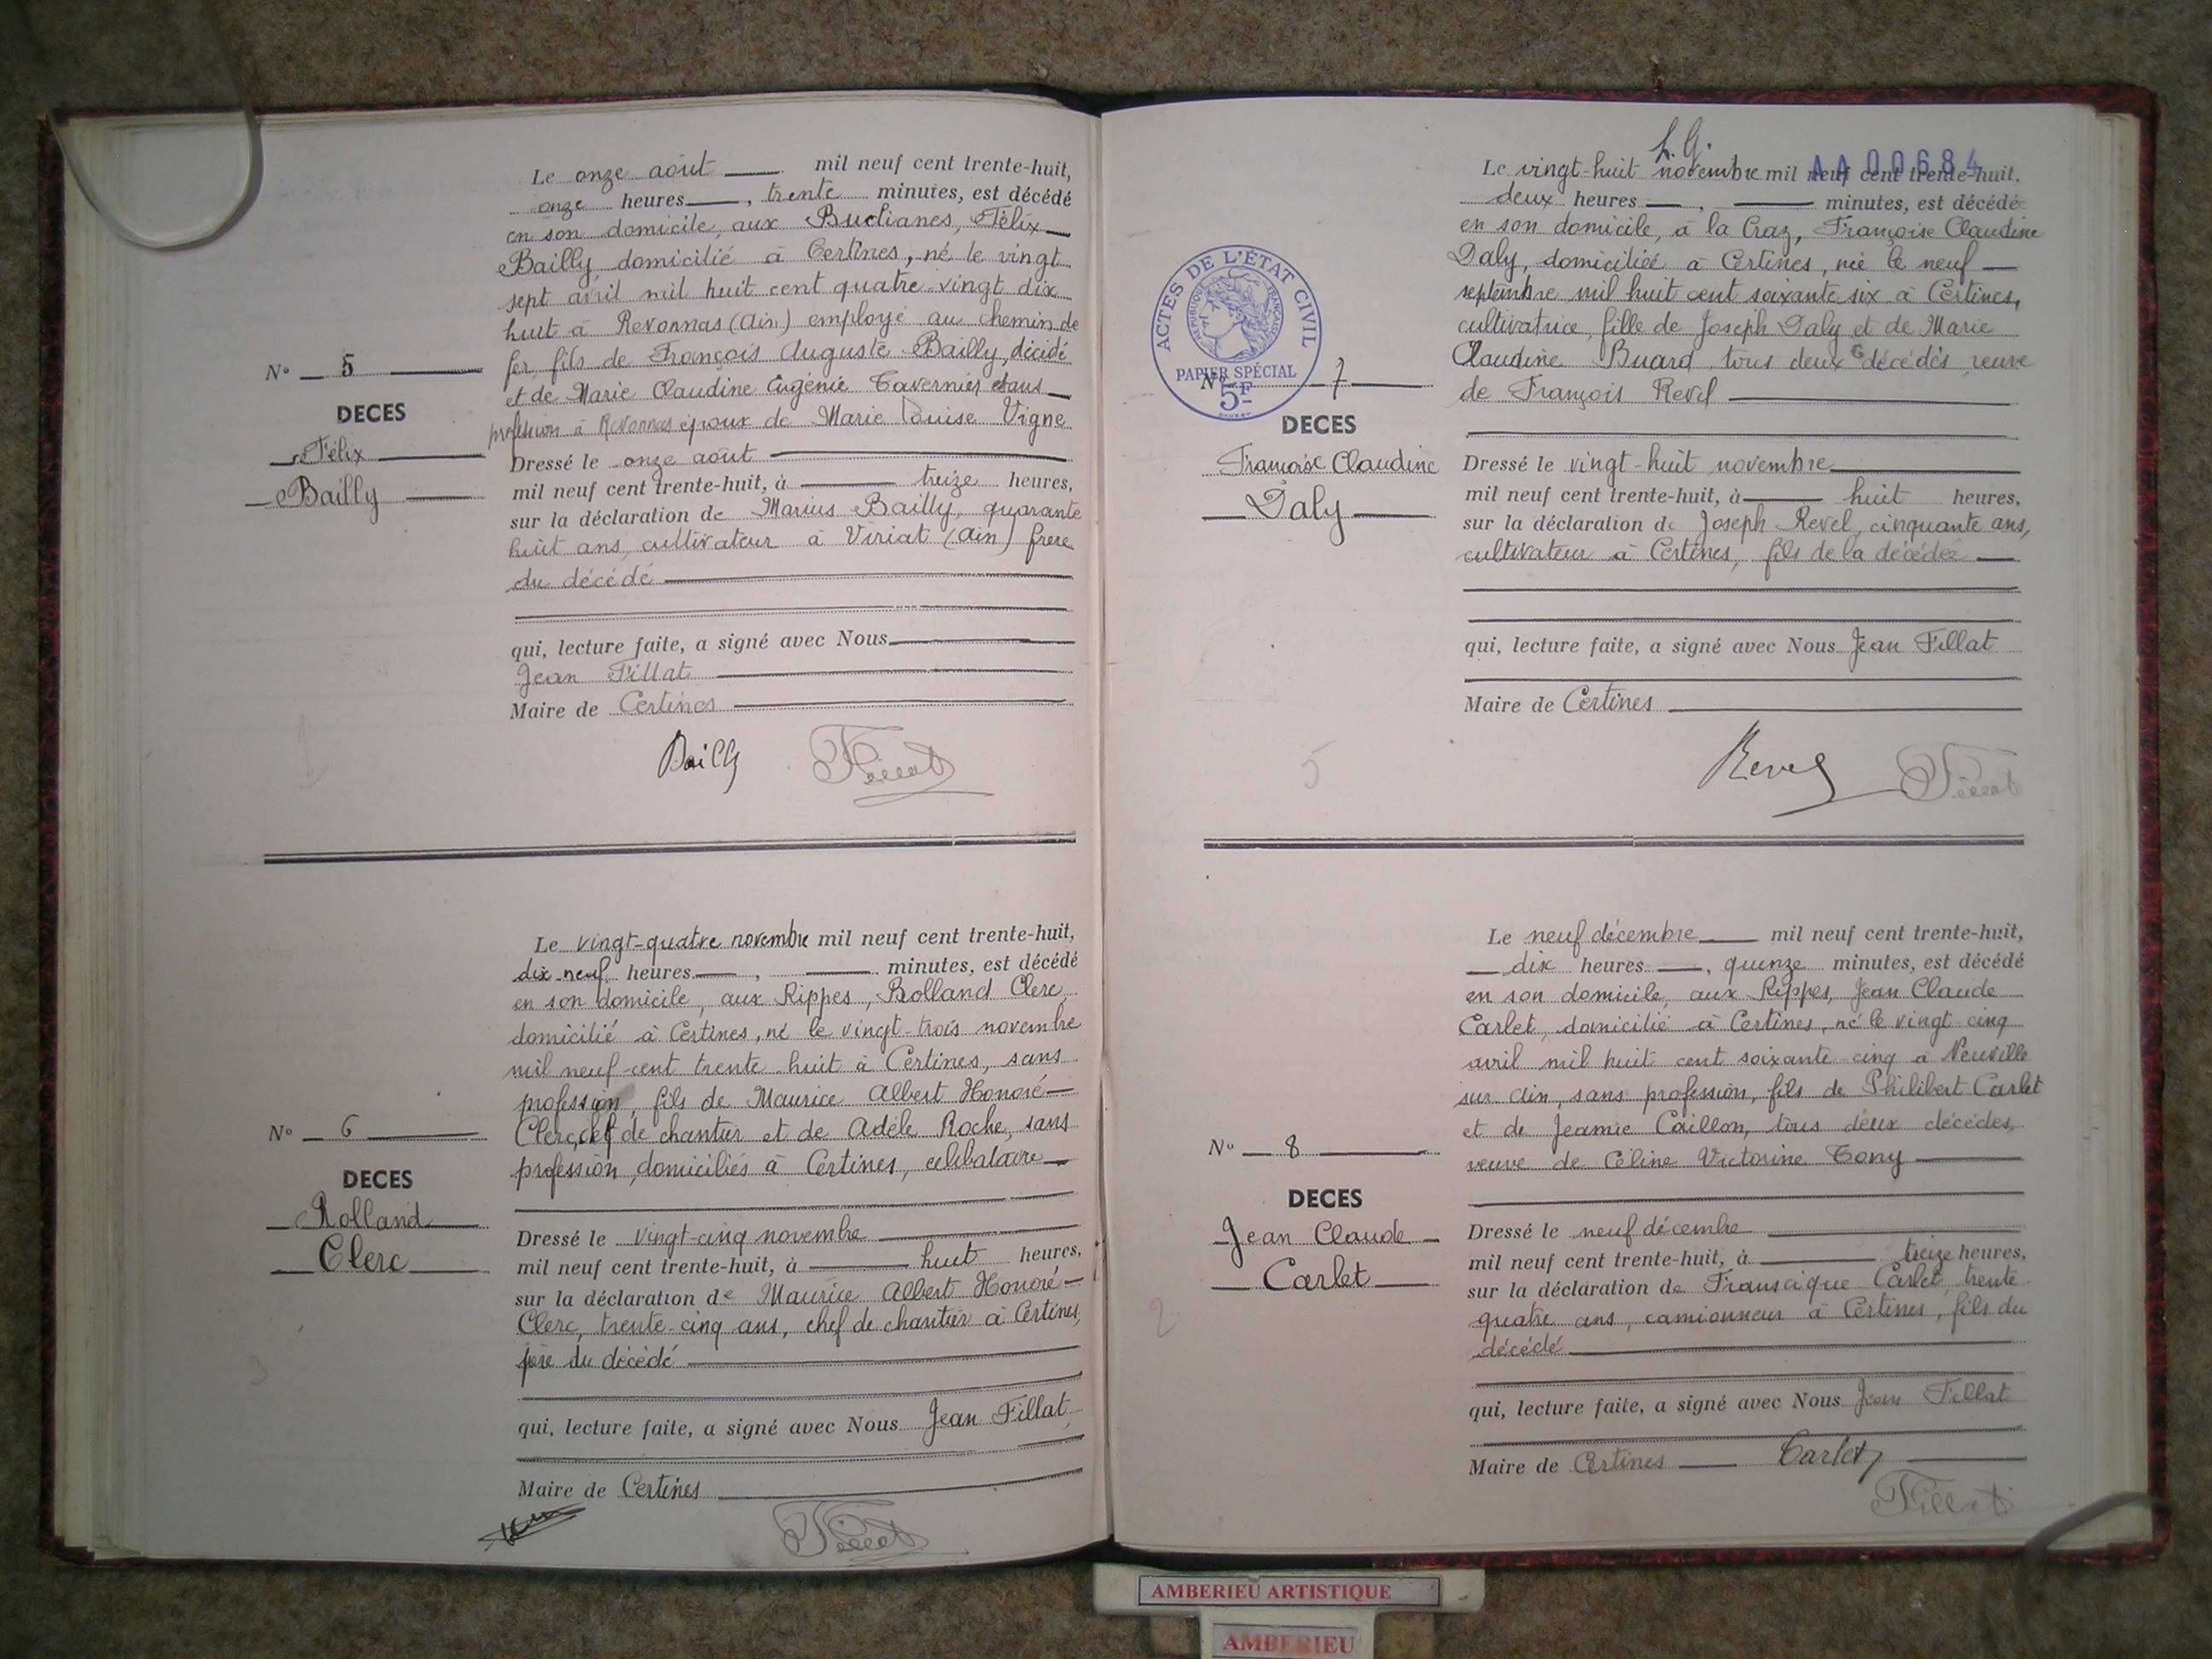 Le onze août mil neuf cent trente-huit,
onze heures, trente minutes, est décédé
en son domicile, aux Buclianes, Félix
Bailly, domicilié à Certines, né le vingt
sept avril mil huit cent quatre vingt dix
huit à Revonnas (Ain) employé au chemin de
fer, fils de François Auguste Bailly, décédé
et de Marie Claudine Eugénie Tavernier, sans
profession à Revonnas époux de Marie Louise Vigne
N° 5
DECES
Félix
Bailly
Dressé le onze août
mil neuf cent trente-huit, à treize heures,
sur la déclaration de Marius Bailly, quarante
huit ans, cultivateur à Viriat (Ain) frère
du décédé
qui, lecture faite, a signé avec Nous
Jean Fillat
Maire de Certines
Bailly Fillat
Le vingt-quatre novembre mil neuf cent trente-huit,
dix neuf heures, minutes, est décédé
en son domicile, aux Rippes, Rolland Clerc,
domicilié à Certines, né le vingt-trois novembre
mil neuf cent trente huit à Certines, sans
profession, fils de Maurice Albert Honoré
Clerc, chef de chantier et de Adèle Roche, sans
profession, domiciliés à Certines, célibataire
N° 6
DECES
Rolland
Clerc
Dressé le vingt-cinq novembre
mil neuf cent trente-huit, à huit heures,
sur la déclaration de Maurice Albert Honoré
Clerc, trente-cinq ans, chef de chantier à Certines,
père du décédé
qui, lecture faite, a signé avec Nous Jean Fillat,
Maire de Certines
Fillat
L.G.
AA00684
Le vingt-huit novembre mil neuf cent trente-huit,
deux heures, minutes, est décédé
en son domicile, à la Craz, Françoise Claudine
Daly, domiciliée à Certines, née le neuf
septembre mil huit cent soixante six à Certines,
cultivatrice, fille de Joseph Daly et de Marie
Claudine Buard, tous deux décédés, veuve
de François Revel
ACTES DE L'ÉTAT CIVIL
RÉPUBLIQUE FRANÇAISE
PAPIER SPÉCIAL
5F
N° 7
DECES
Françoise Claudine
Daly
Dressé le vingt-huit novembre
mil neuf cent trente-huit, à huit heures,
sur la déclaration de Joseph Revel, cinquante ans,
cultivateur à Certines, fils de la décédée
qui, lecture faite, a signé avec Nous Jean Fillat
Maire de Certines
Revel Fillat
Le neuf décembre mil neuf cent trente-huit,
dix heures, quinze minutes, est décédé
en son domicile, aux Rippes, Jean Claude
Carlet, domicilié à Certines, né le vingt cinq
avril mil huit cent soixante-cinq à Neuville
sur Ain, sans profession, fils de Philibert Carlet
et de Jeannie Caillon, tous deux décédés,
veuve de Céline Victorine Tony
N° 8
DECES
Jean Claude
Carlet
Dressé le neuf décembre
mil neuf cent trente-huit, à treize heures,
sur la déclaration de Franscique Carlet, trente
quatre ans, camionneur à Certines, fils du
décédé
qui, lecture faite, a signé avec Nous Jean Fillat
Maire de Certines Carlet
Fillat
AMBERIEU ARTISTIQUE
AMBERIEU